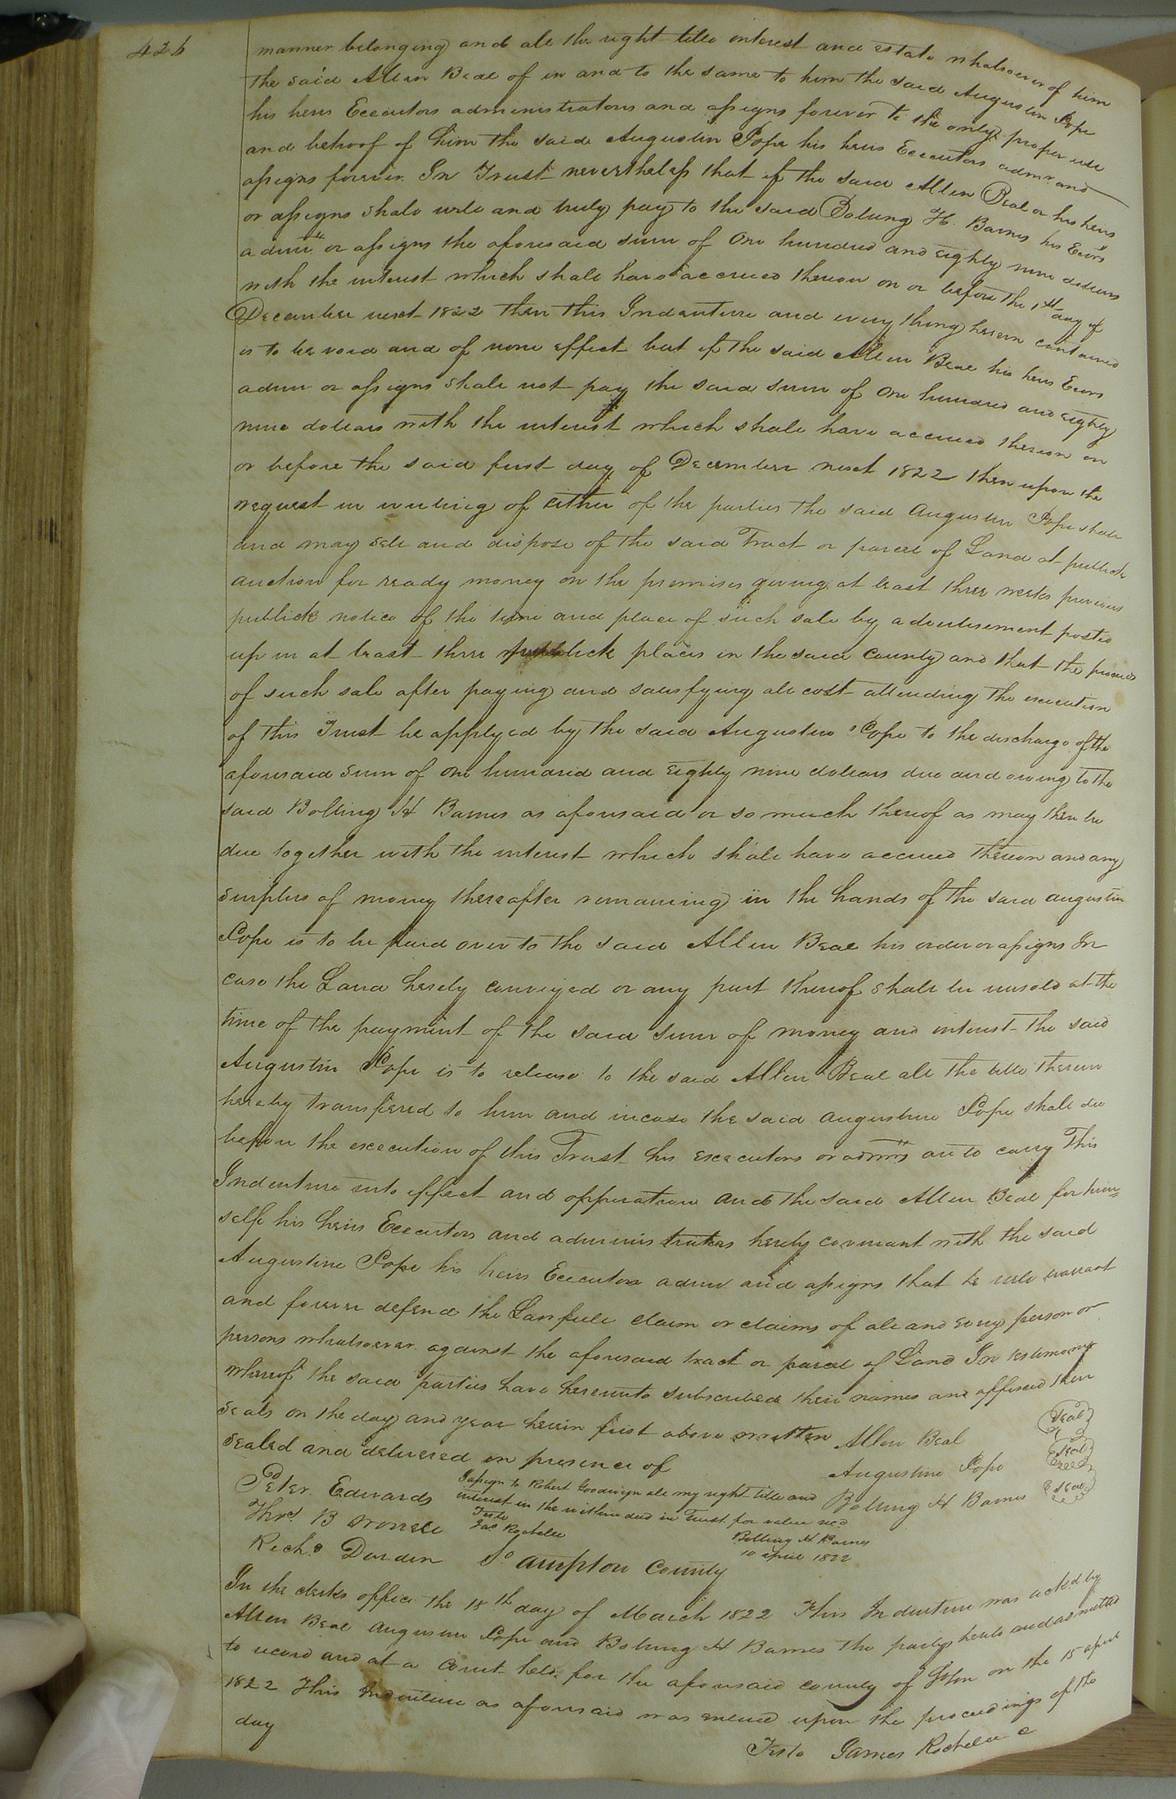 426
manner belonging and all the right title interest and estate whatsoever of him
the said Allen Beal of in and to the same to him the said Augustin Pope
his heirs Executors administrators and assigns forever to the only proper use
and behoof of him the said Augustin Pope his heirs Executors admrs and
assigns forever In Trust nevertheless that if the said Allen Beal or his heirs
or assigns shall well and truly pay to the said Bolling H. Barnes his Exors
admrs or assigns the aforesaid sum of One hundred and Eighty nine dollars
with the interest which shall have accrued thereon on or before the 1st day of
December next 1822 then this Indenture and every thing herein contained
is to be void and of none effect but if the said Allen Beal his heirs Exors
admr or assigns shall not pay the said sum of One hundred and Eighty
nine dollars with the interest which shall have accrued thereon on
or before the said first day of December next 1822 then upon the
request in writing of Either of the parties the said Augustin Pope shall
and may sell and dispose of the said Tract or parcel of Land at publick
auction for ready money on the premises giving at least three weeks previous
publick notice of the time and place of such sale by advertisement posted
up in at least three publick places in the said County and that the proceeds
of such sale after paying and satisfying all cost attending the execution
of this Trust be applyed by the said Augustine Pope to the discharge of the
aforesaid Sum of One hundred and Eighty nine dollars due and owing to the
said Bolling H Barnes as aforesaid or so much thereof as may then be
due together with the interest which shall have accrued thereon and any
surplus of money thereafter remaining in the hands of the said augustin
Pope is to be paid over to the said Allen Beal his order or assigns In
case the Land hereby conveyed or any part thereof shall be unsold at the
time of the payment of the said sum of money and interest the said
Augustin Pope is to release to the said Allen Beal all the title therein
hereby transfered to him and incase the said augustine Pope shall die
before the execution of this Trust his executors or admrs are to carry This
Indenture into effect and opperation and the said Allen Beal for him=
self his heirs Executors and administrators hereby covenant with the said
Augustine Pope his heirs Executors admr and assigns that he will warrant
and forever defend the Lawfull claim or claims of all and every person or
persons whatsoever against the aforesaid tract or parcel of Land In testimony
whereof the said parties have hereunto subscribed their names and affixed their
seals on the day and year herein first above written Allen Beal Seal
Sealed and delivered in presence of Augustine Pope Seal
Peter Edwards Bolling H Barnes Seal
Thos B
Richd Darden
I assign to Robert Goodwyn all my right title and
interest in the within deed in Trust for value recd
Teste
Jas Rochelle
Bolling H Barnes
10 april 1822
So ampton County
In the clerks office the 18th day of March 1822 This Indenture was ackd by
Allen Beal Augustin Pope and Bolling H Barnes the partys hereto and admitted
to record and at a Court held for the aforesaid county of So hton on the 15 april
1822 This Indenture as aforesaid was entered upon the proceedings of the
day
Teste James Rochelle C